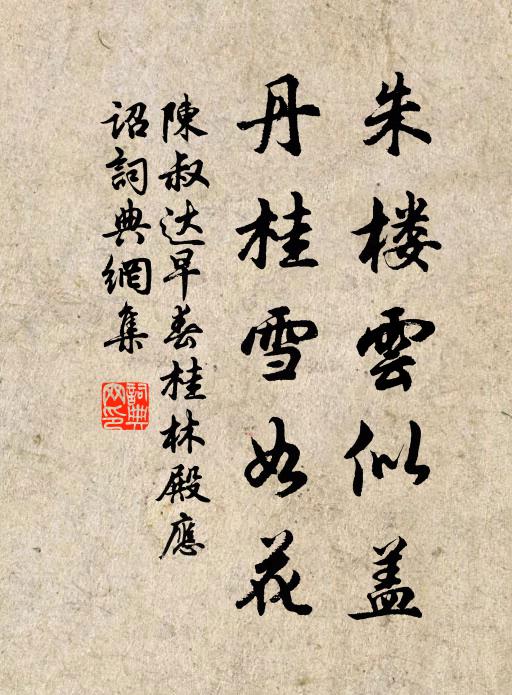 朱楼雲似盖
丹桂雪如花
陳叔达早春桂林殿應
詔詞典網集
詞典
网印